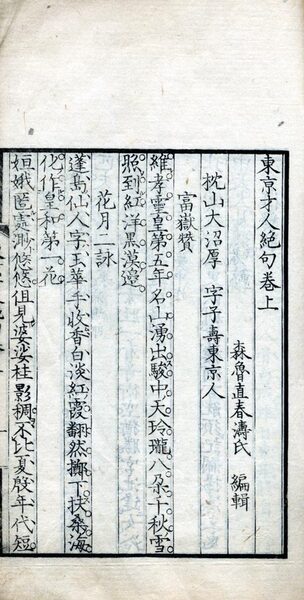 東京才人絶句卷上
森魯直春濤氏 編輯
枕山大沼厚 字子壽東京人
富嶽贊
維孝靈皇第五年名山湧出駿中天玲瓏八朶千秋雪
照到紅洋黑漠邊
花月二詠
蓬島仙人字玉華手收香白淡紅霞翻然擲下扶桑海
化作皇和第一花
姮娥匿處渺悠悠但見婆娑桂影稠不比夏殷年代短